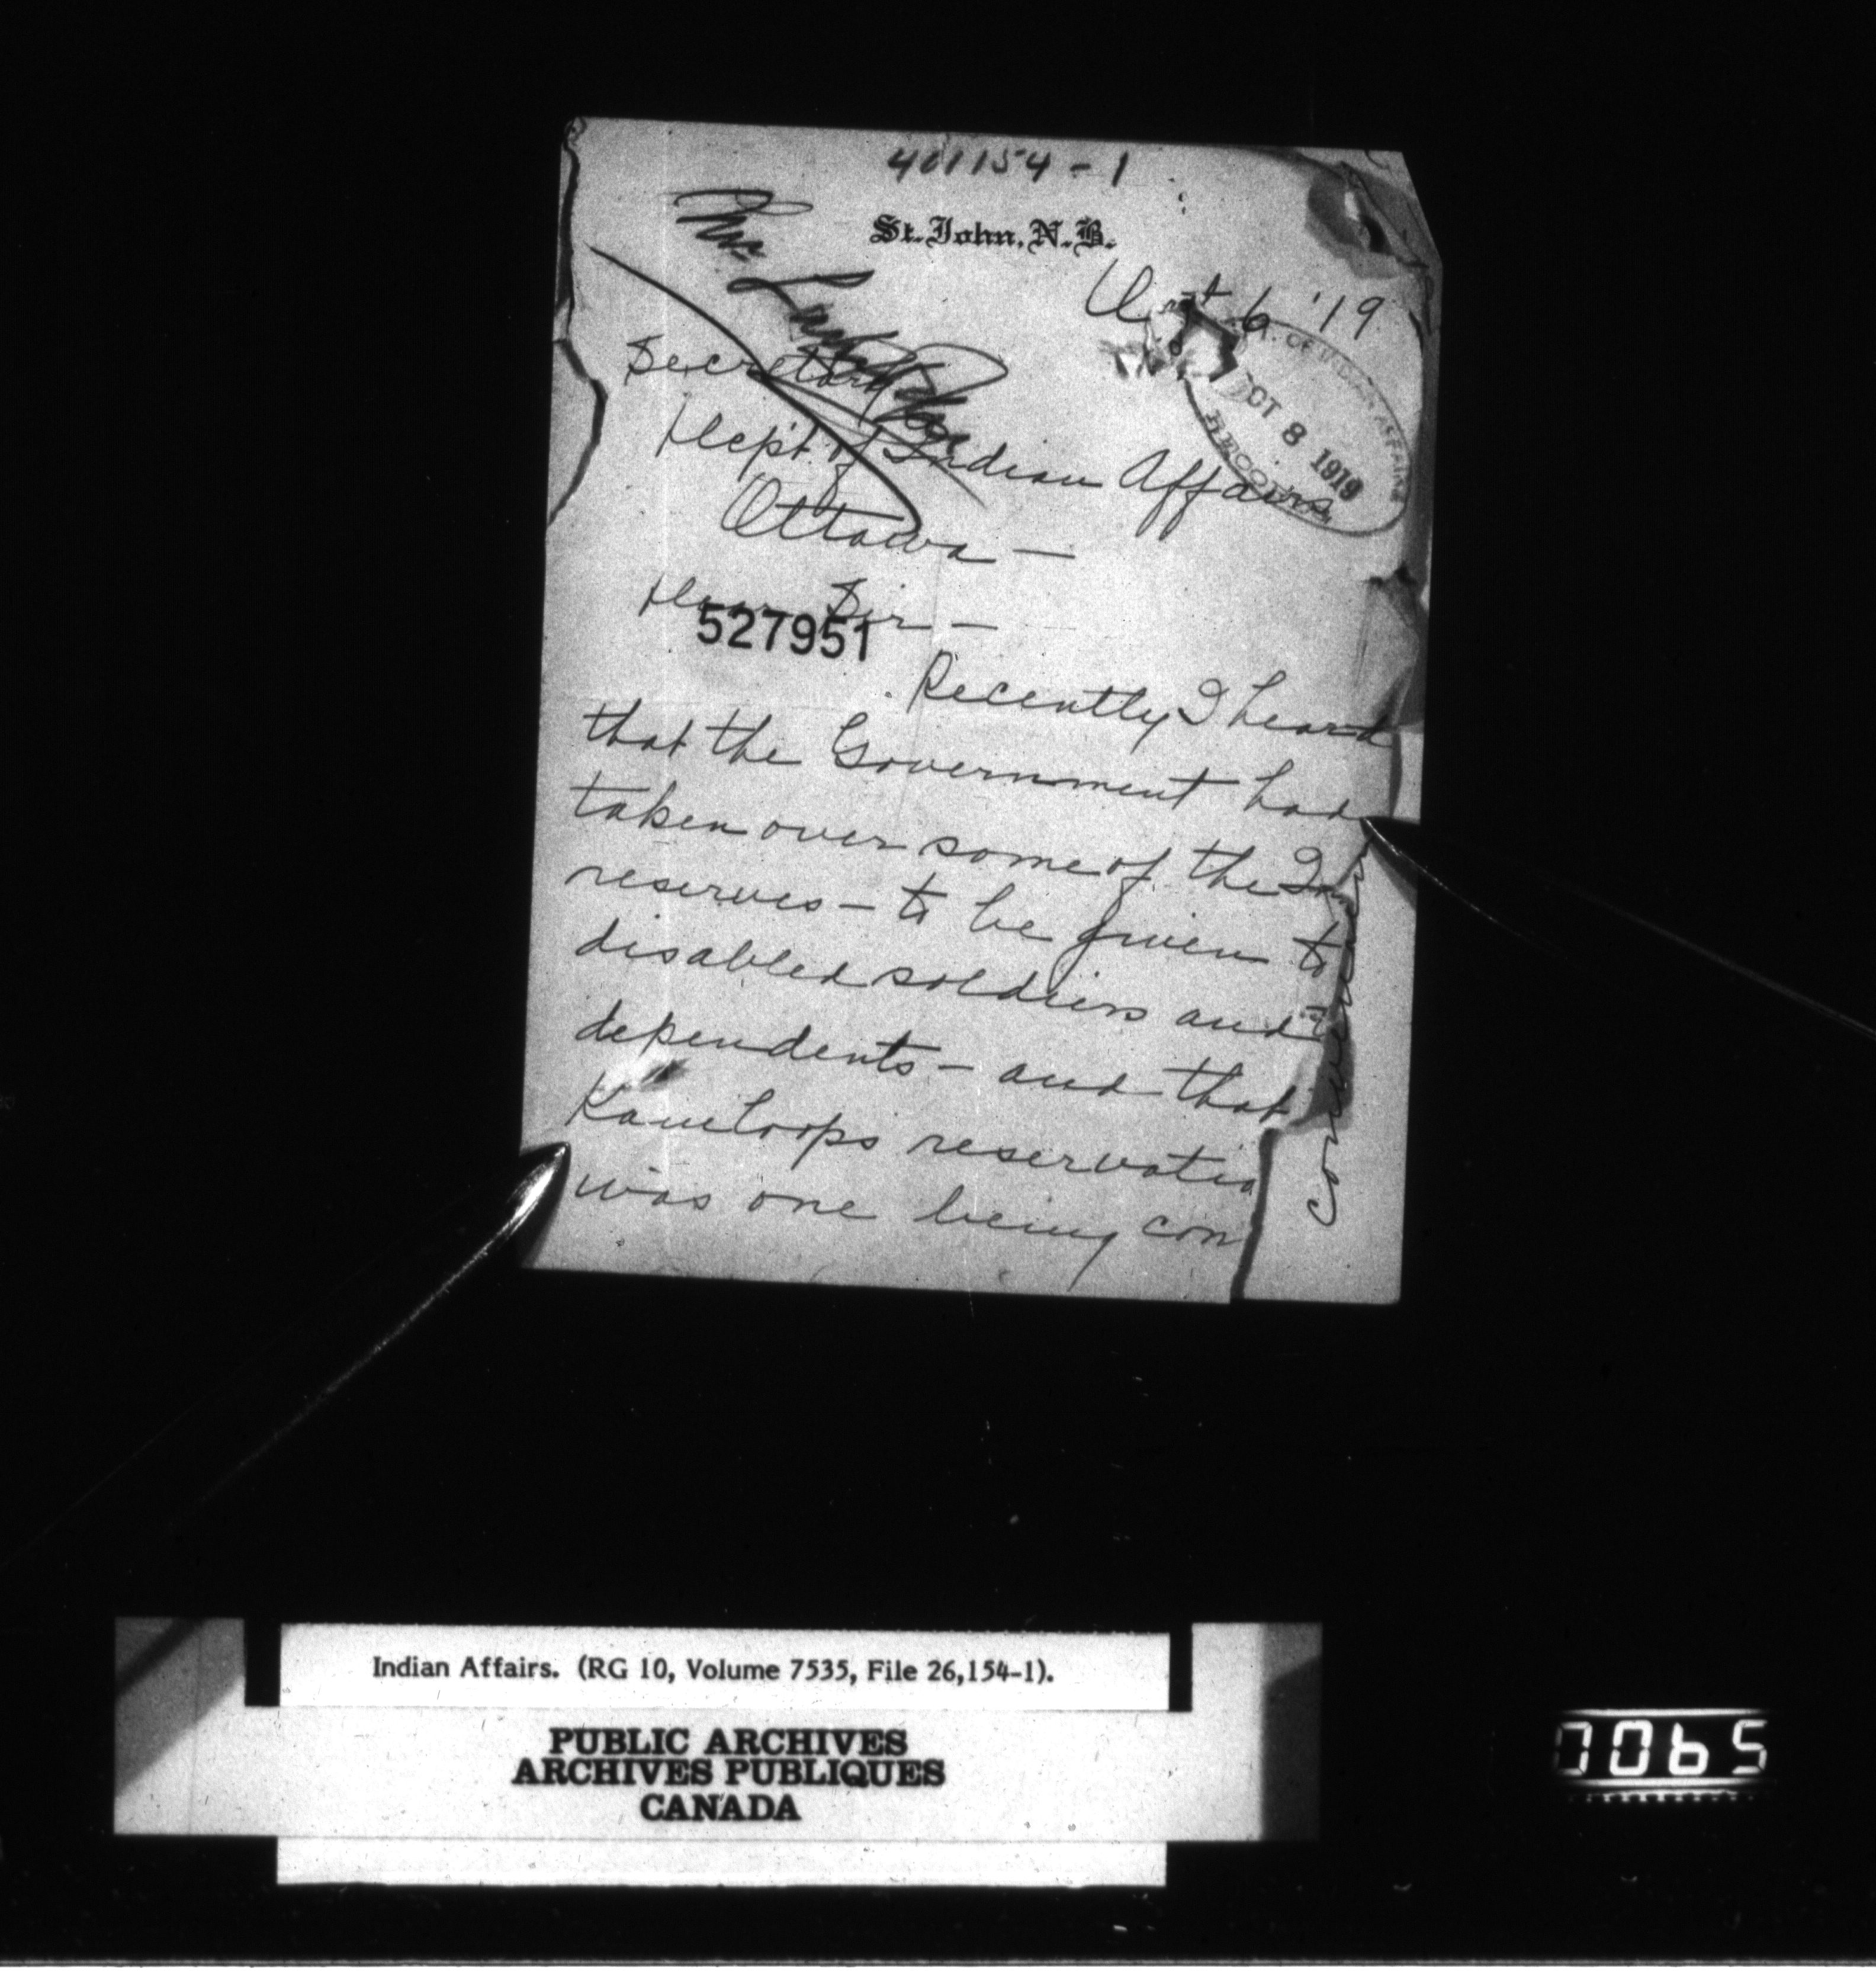 401154-1
St. John, N.B.
6 '19
DEPT. OF INDIAN AFFAIRS
OCT 8 1919
RECORDS
Secretary
Dept. of Indian Affairs
Ottawa —
Dear Sir —
527951
Recently I heard
that the Government had
taken over some of the In
reserves — to be given to
disabled soldiers and
dependents — and that
Kamloops reservatio
was one being con
Indian Affairs. (RG 10, Volume 7535, File 26,154-1).
PUBLIC ARCHIVES
ARCHIVES PUBLIQUES
CANADA
0065